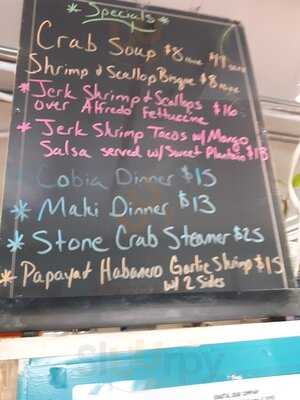 * Specials *
Crab Soup $8
Shrimp & Scallop Bisque $8
* Jerk Shrimp & Scallops $16
over Alfredo Fettuccine
* Jerk Shrimp Tacos w/ Mango
Salsa served w/ Sweet Plantain $13
* Cobia Dinner $15
* Mahi Dinner $13
* Stone Crab Steamer $25
* Papaya & Habanero Garlic Shrimp $15
w/ 2 Sides